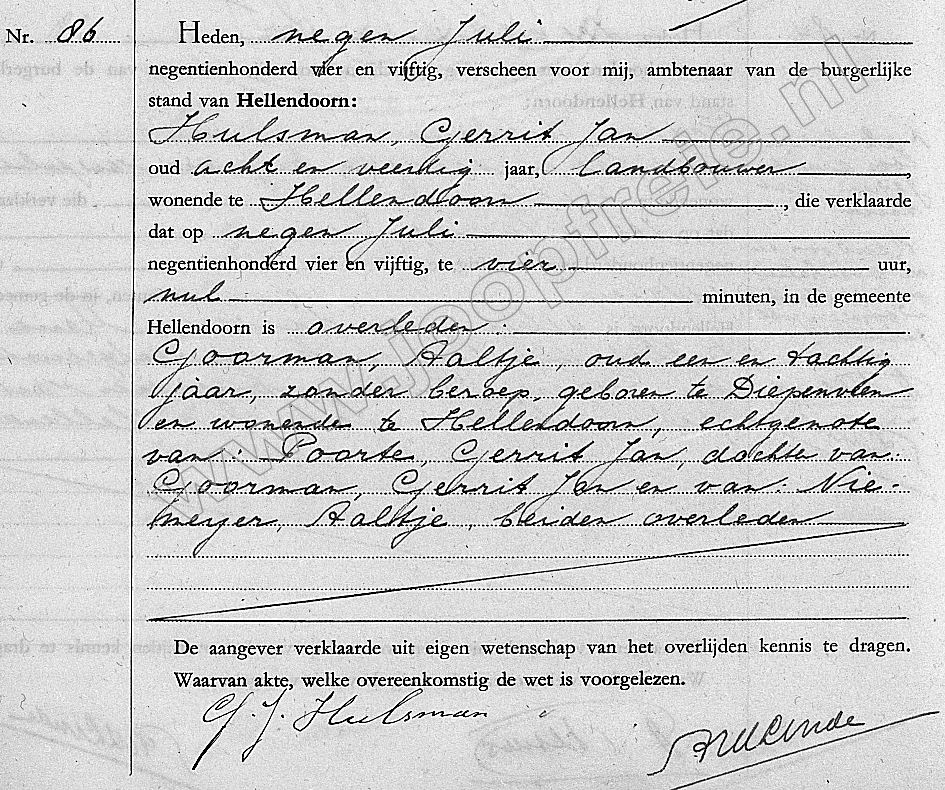 Nr. 86 Heden, negen Juli
negentienhonderd vier en vijftig, verscheen voor mij, ambtenaar van de burgerlijke
stand van Hellendoorn:
Hulsman, Gerrit Jan
oud acht en veertig jaar, landbouwer,
wonende te Hellendoorn, die verklaarde
dat op negen Juli
negentienhonderd vier en vijftig, te vier uur,
nul minuten, in de gemeente
Hellendoorn is overleden:
Goorman, Aaltje, oud een en tachtig
jaar, zonder beroep, geboren te Diepenveen
en wonende te Hellendoorn, echtgenote
van: Poorte, Gerrit Jan, dochter van:
Goorman, Gerrit Jan en van: Nie-
meyer, Aaltje, beiden overleden
De aangever verklaarde uit eigen wetenschap van het overlijden kennis te dragen.
Waarvan akte, welke overeenkomstig de wet is voorgelezen.
G. J. Hulsman
www.joopfreie.nl